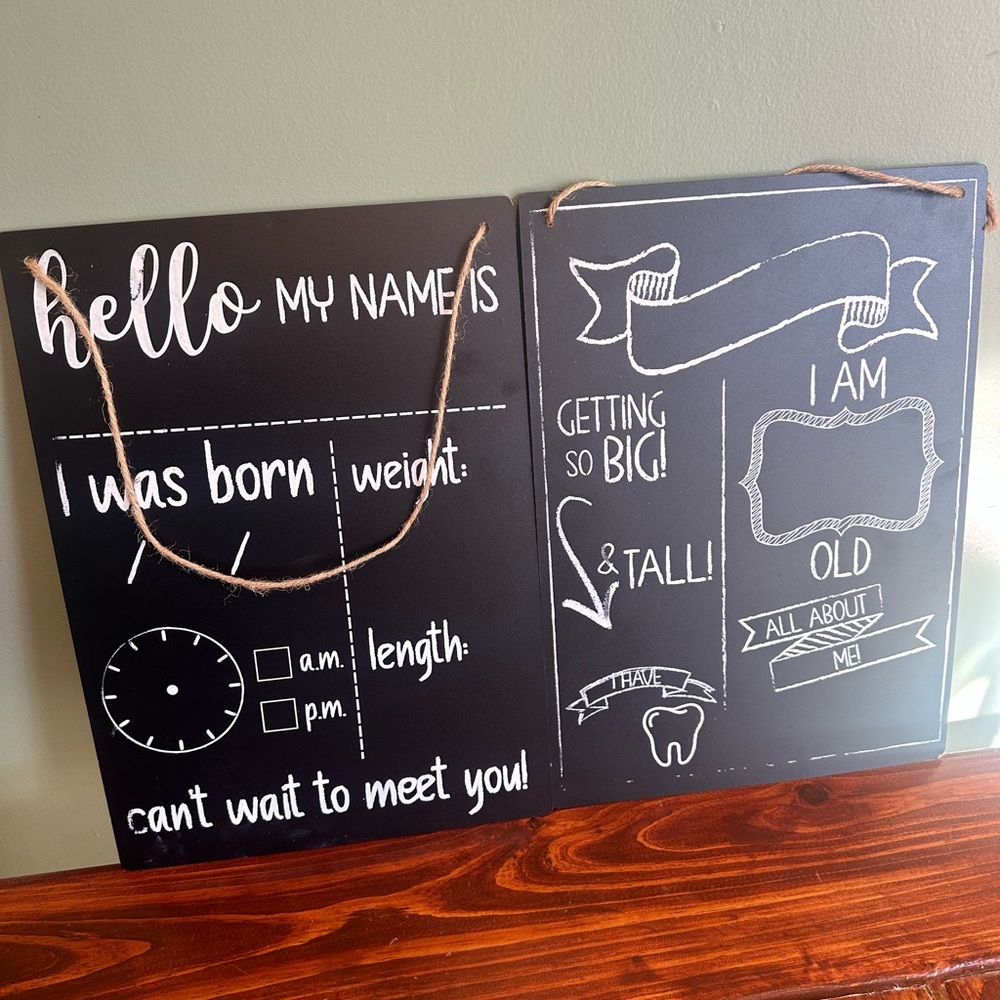 hello MY NAME IS
I was born
/ /
weight:
length:
a.m.
p.m.
can't wait to meet you!
I AM
OLD
GETTING
SO BIG!
& TALL!
I HAVE
ALL ABOUT
ME!